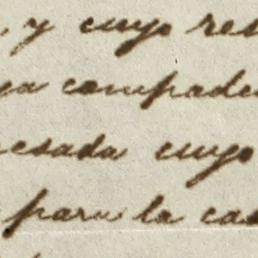 , y cuyo res
ya compade
esada cuyo
para la cas